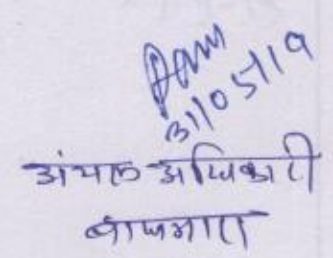 31/05/19
अंचल अधिकारी
बाघमारा